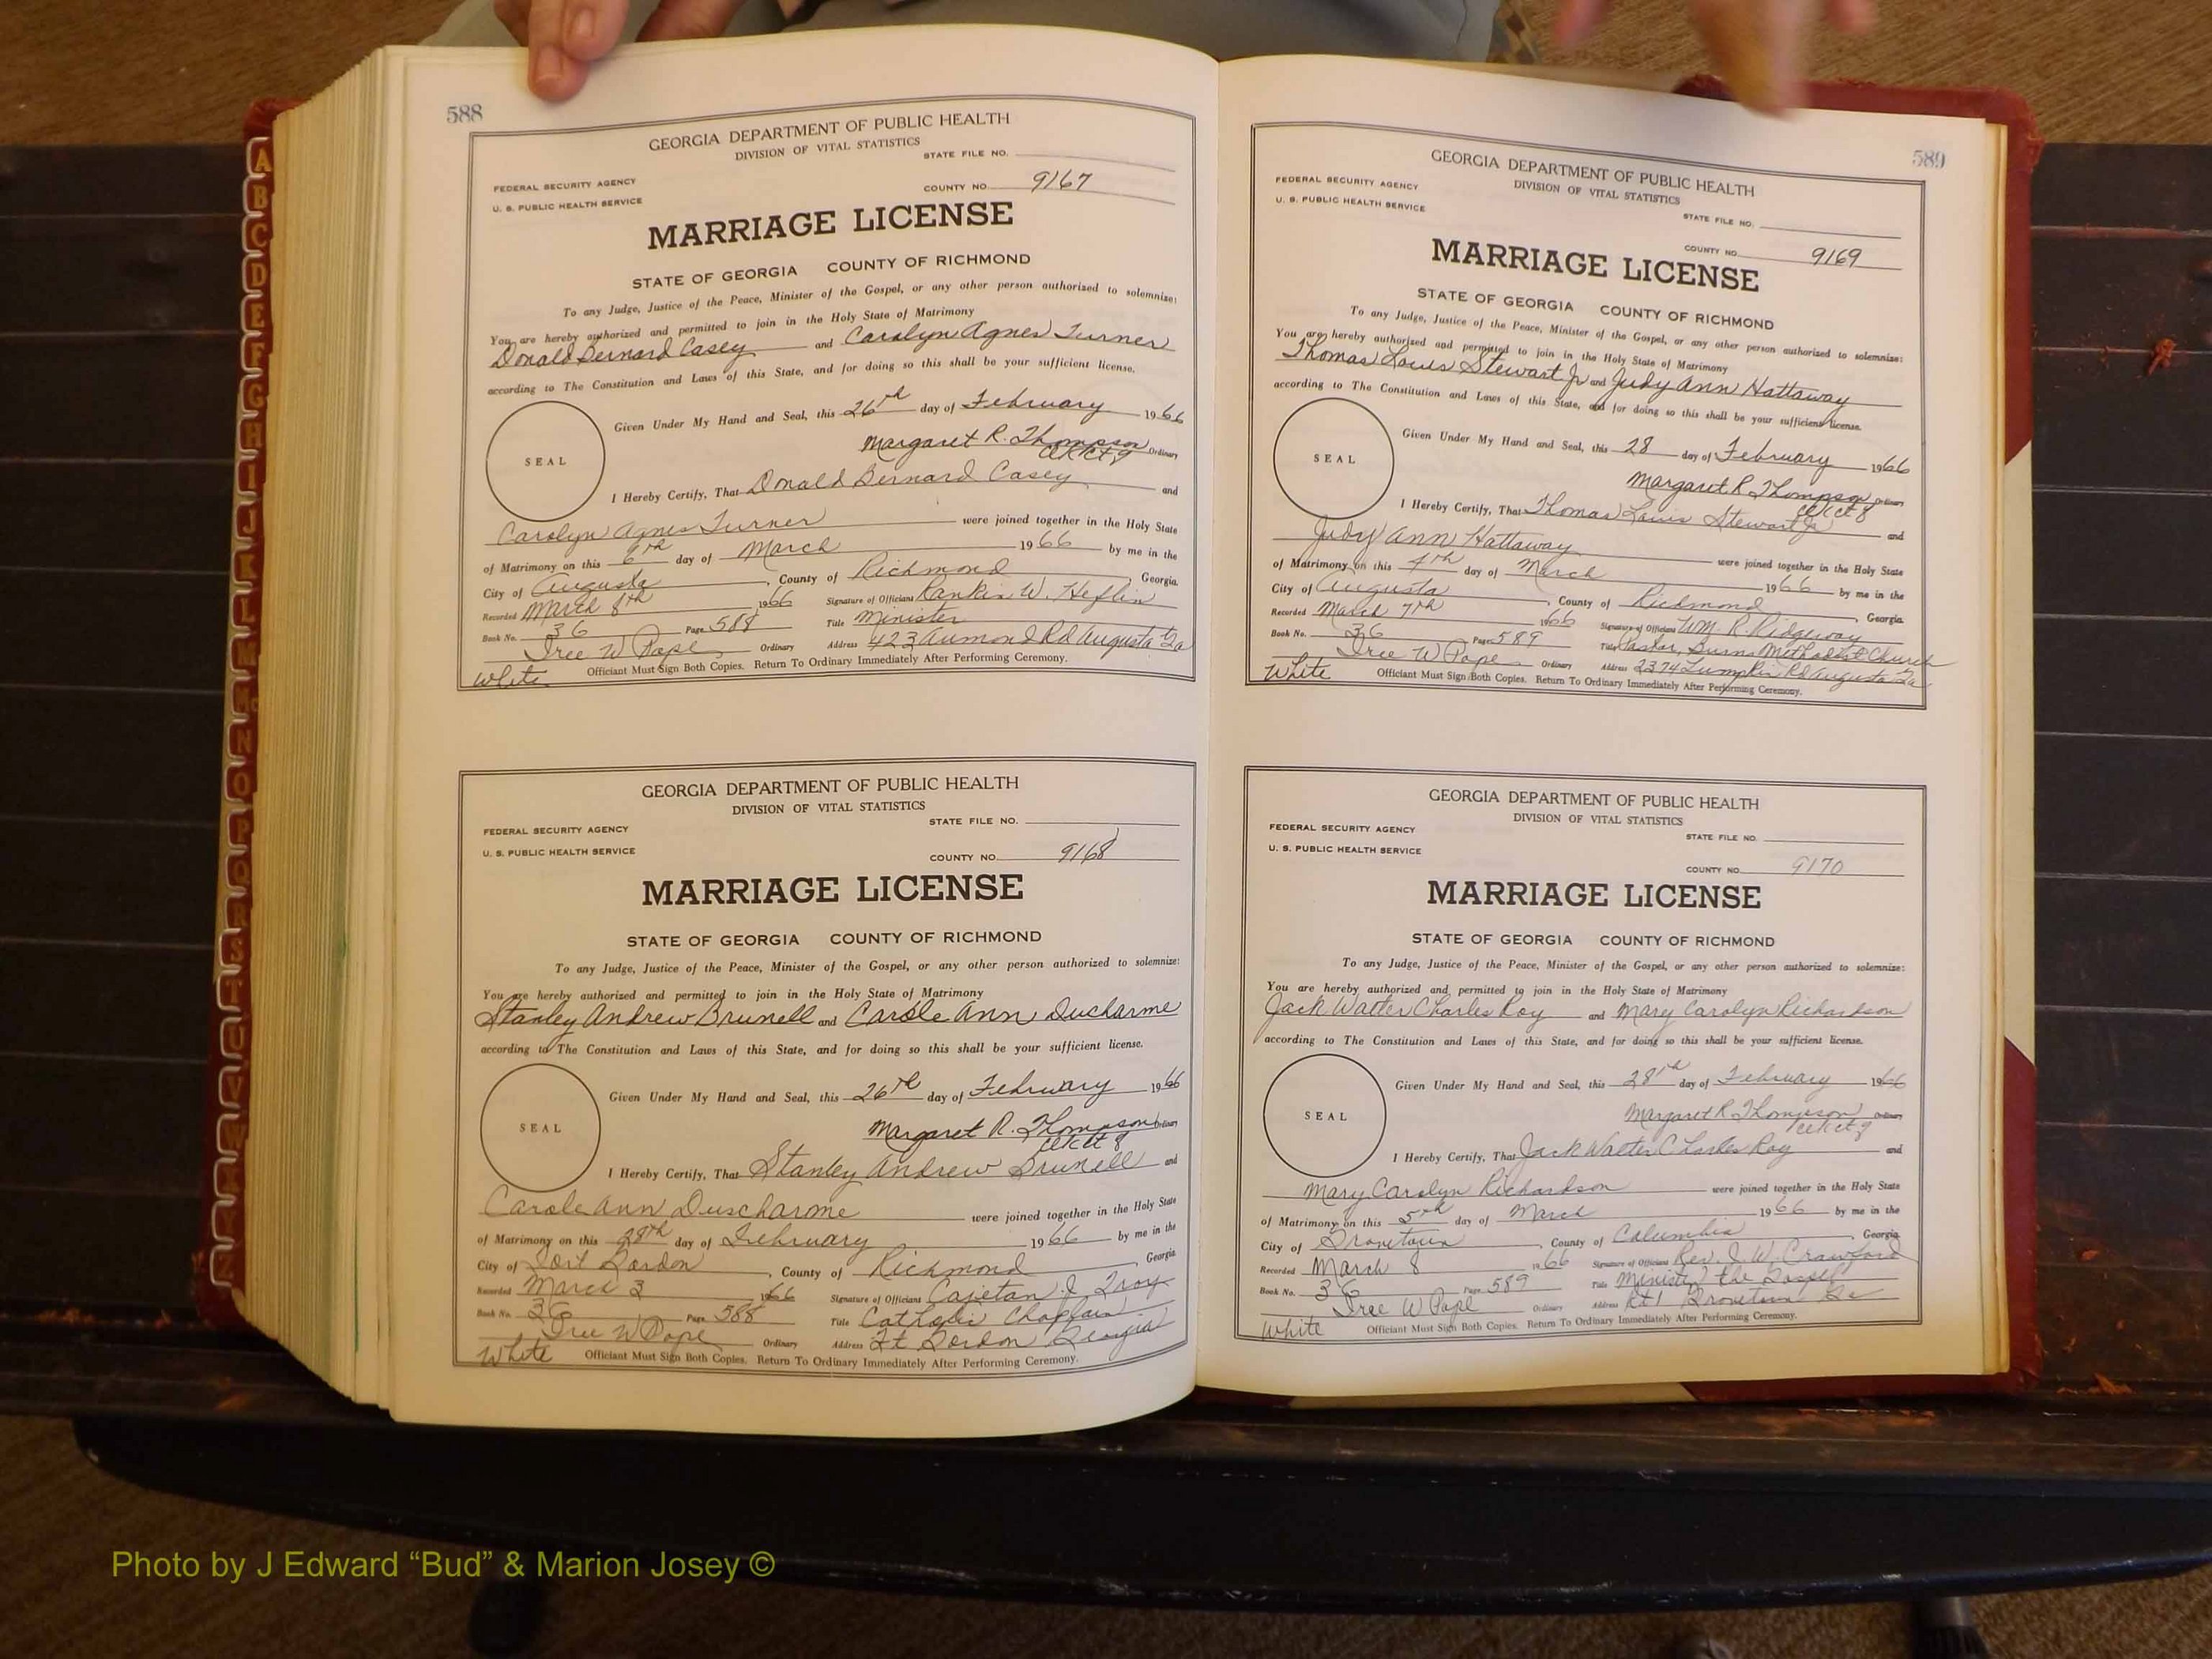 588
GEORGIA DEPARTMENT OF PUBLIC HEALTH
DIVISION OF VITAL STATISTICS
STATE FILE NO.
FEDERAL SECURITY AGENCY
COUNTY NO. 9167
U. S. PUBLIC HEALTH SERVICE
MARRIAGE LICENSE
STATE OF GEORGIA COUNTY OF RICHMOND
To any Judge, Justice of the Peace, Minister of the Gospel, or any other person authorized to solemnize:
You are hereby authorized and permitted to join in the Holy State of Matrimony
Donald Bernard Casey and Carolyn Agnes Turner
according to The Constitution and Laws of this State, and for doing so this shall be your sufficient license.
Given Under My Hand and Seal, this 26th day of February 1966
Margaret R. Thompson Ordinary
SEAL
I Hereby Certify, That Donald Bernard Casey and
Carolyn Agnes Turner were joined together in the Holy State
of Matrimony on this 6th day of March 1966 by me in the
City of Augusta, County of Richmond Georgia.
Recorded March 8th 1966 Signature of Officiant Rankin W. Heflin
Book No. 36 Page 588 Title Minister
Iree W Pope Ordinary Address 423 Aumond Rd Augusta Ga
White Officiant Must Sign Both Copies. Return To Ordinary Immediately After Performing Ceremony.
GEORGIA DEPARTMENT OF PUBLIC HEALTH
DIVISION OF VITAL STATISTICS
STATE FILE NO.
FEDERAL SECURITY AGENCY
U. S. PUBLIC HEALTH SERVICE
COUNTY NO. 9168
MARRIAGE LICENSE
STATE OF GEORGIA COUNTY OF RICHMOND
To any Judge, Justice of the Peace, Minister of the Gospel, or any other person authorized to solemnize:
You are hereby authorized and permitted to join in the Holy State of Matrimony
Stanley Andrew Brunell and Carole Ann Ducharme
according to The Constitution and Laws of this State, and for doing so this shall be your sufficient license.
Given Under My Hand and Seal, this 26th day of February 1966
Margaret R. Thompson Ordinary
SEAL
I Hereby Certify, That Stanley Andrew Brunell and
Carole Ann Duscharme were joined together in the Holy State
of Matrimony on this 28th day of February 1966 by me in the
City of Fort Gordon, County of Richmond Georgia
Recorded March 3 1966 Signature of Officiant Cajetan J Troy
Book No. 36 Page 588 Title Catholic Chaplain
Iree W Pope Ordinary Address Ft Gordon Georgia
White Officiant Must Sign Both Copies. Return To Ordinary Immediately After Performing Ceremony.
589
GEORGIA DEPARTMENT OF PUBLIC HEALTH
DIVISION OF VITAL STATISTICS
FEDERAL SECURITY AGENCY
U. S. PUBLIC HEALTH SERVICE
STATE FILE NO.
COUNTY NO. 9169
MARRIAGE LICENSE
STATE OF GEORGIA COUNTY OF RICHMOND
To any Judge, Justice of the Peace, Minister of the Gospel, or any other person authorized to solemnize:
You are hereby authorized and permitted to join in the Holy State of Matrimony
Thomas Louis Stewart Jr and Judy Ann Hattaway
according to The Constitution and Laws of this State, and for doing so this shall be your sufficient license.
Given Under My Hand and Seal, this 28 day of February 1966
Margaret R. Thompson Ordinary
SEAL
I Hereby Certify, That Thomas Louis Stewart Jr and
Judy Ann Hattaway were joined together in the Holy State
of Matrimony on this 4th day of March 1966 by me in the
City of Augusta, County of Richmond Georgia.
Recorded March 7th 1966 Signature of Officiant Wm R. Ridgeway
Book No. 36 Page 589 Title Pastor, Burns Methodist Church
Iree W Pope Ordinary Address 2374 Lumpkin Rd Augusta Ga
White Officiant Must Sign Both Copies. Return To Ordinary Immediately After Performing Ceremony.
GEORGIA DEPARTMENT OF PUBLIC HEALTH
DIVISION OF VITAL STATISTICS
FEDERAL SECURITY AGENCY
STATE FILE NO.
U. S. PUBLIC HEALTH SERVICE
COUNTY NO. 9170
MARRIAGE LICENSE
STATE OF GEORGIA COUNTY OF RICHMOND
To any Judge, Justice of the Peace, Minister of the Gospel, or any other person authorized to solemnize:
You are hereby authorized and permitted to join in the Holy State of Matrimony
Jack Walter Charles Roy and Mary Carolyn Richardson
according to The Constitution and Laws of this State, and for doing so this shall be your sufficient license.
Given Under My Hand and Seal, this 28th day of February 1966
Margaret R Thompson Ordinary
SEAL
I Hereby Certify, That Jack Walter Charles Roy and
Mary Carolyn Richardson were joined together in the Holy State
of Matrimony on this 5th day of March 1966 by me in the
City of Grovetown, County of Columbia Georgia
Recorded March 8 1966 Signature of Officiant Rev. J. W. Crawford
Book No. 36 Page 589 Title Minister the Gospel
Iree W Pope Ordinary Address Rt 1 Grovetown Ga
White Officiant Must Sign Both Copies. Return To Ordinary Immediately After Performing Ceremony.
A
B
C
D
E
F
G
H
I
J
K
L
M
Mc
N
O
P
Q
R
S
T
U
V
W
X
Y
Z
Photo by J Edward “Bud” & Marion Josey ©